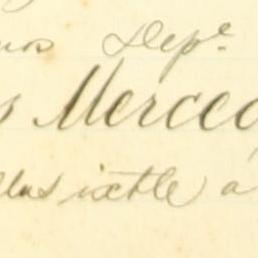 nos Depe
s Merced
llas ixtle a